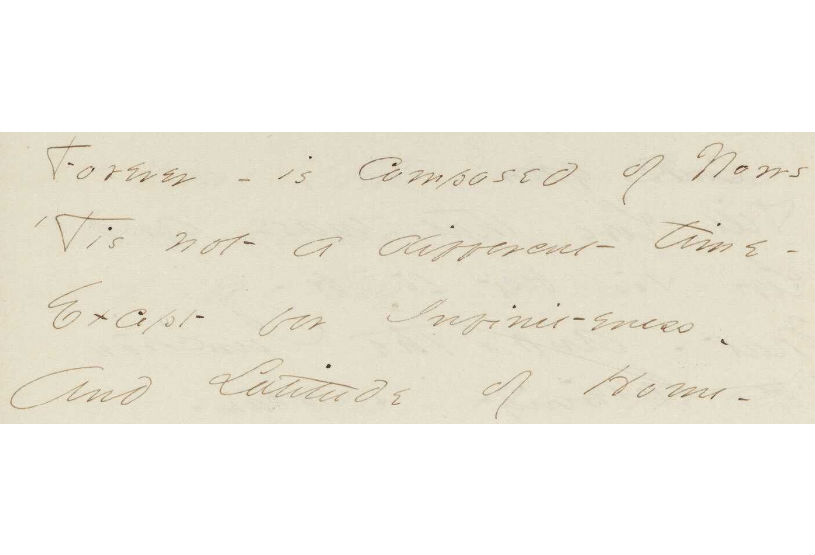 Forever - is Composed of Nows
'Tis not a different time -
Except for Infiniteness.
And Latitude of Home -